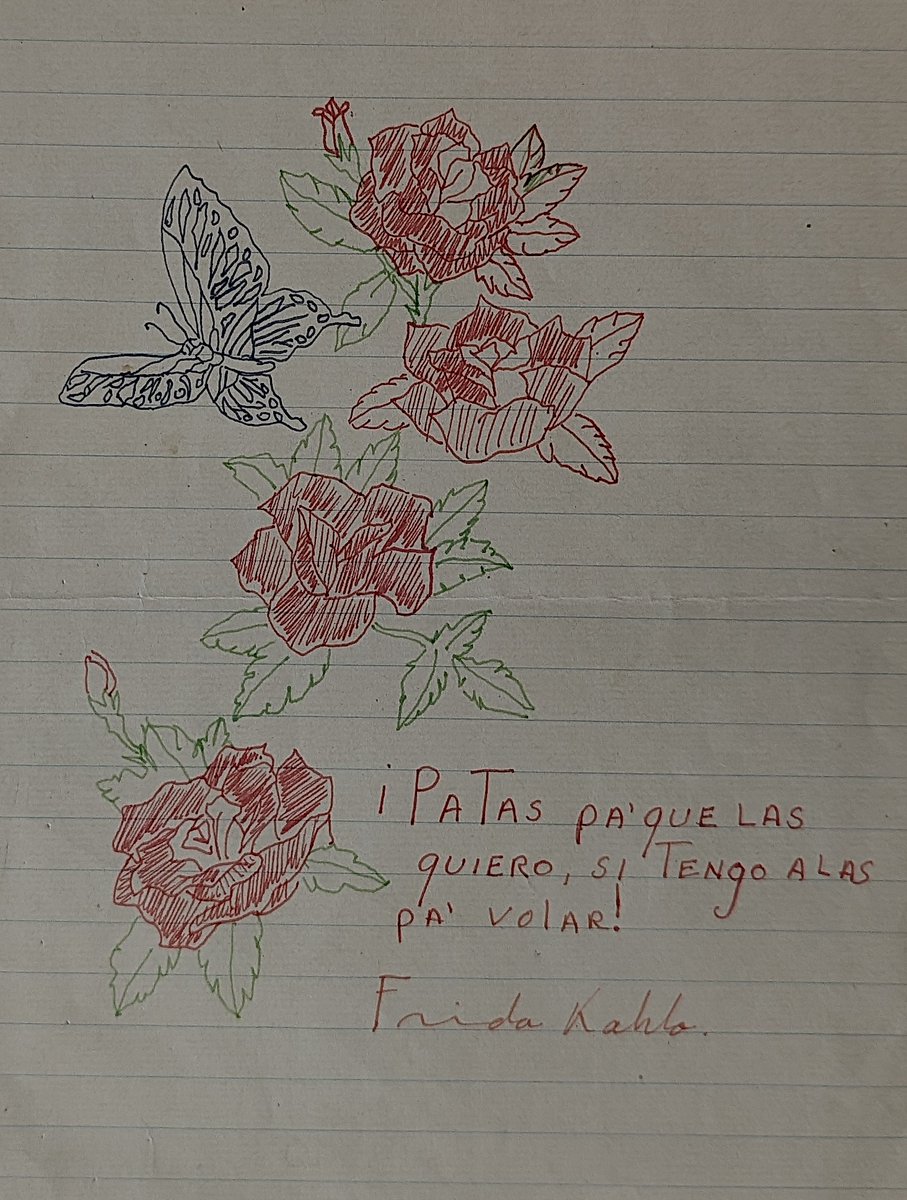 ¡PATAS PA'QUE LAS
QUIERO, SI TENGO ALAS
PA' VOLAR!
Frida Kahlo.